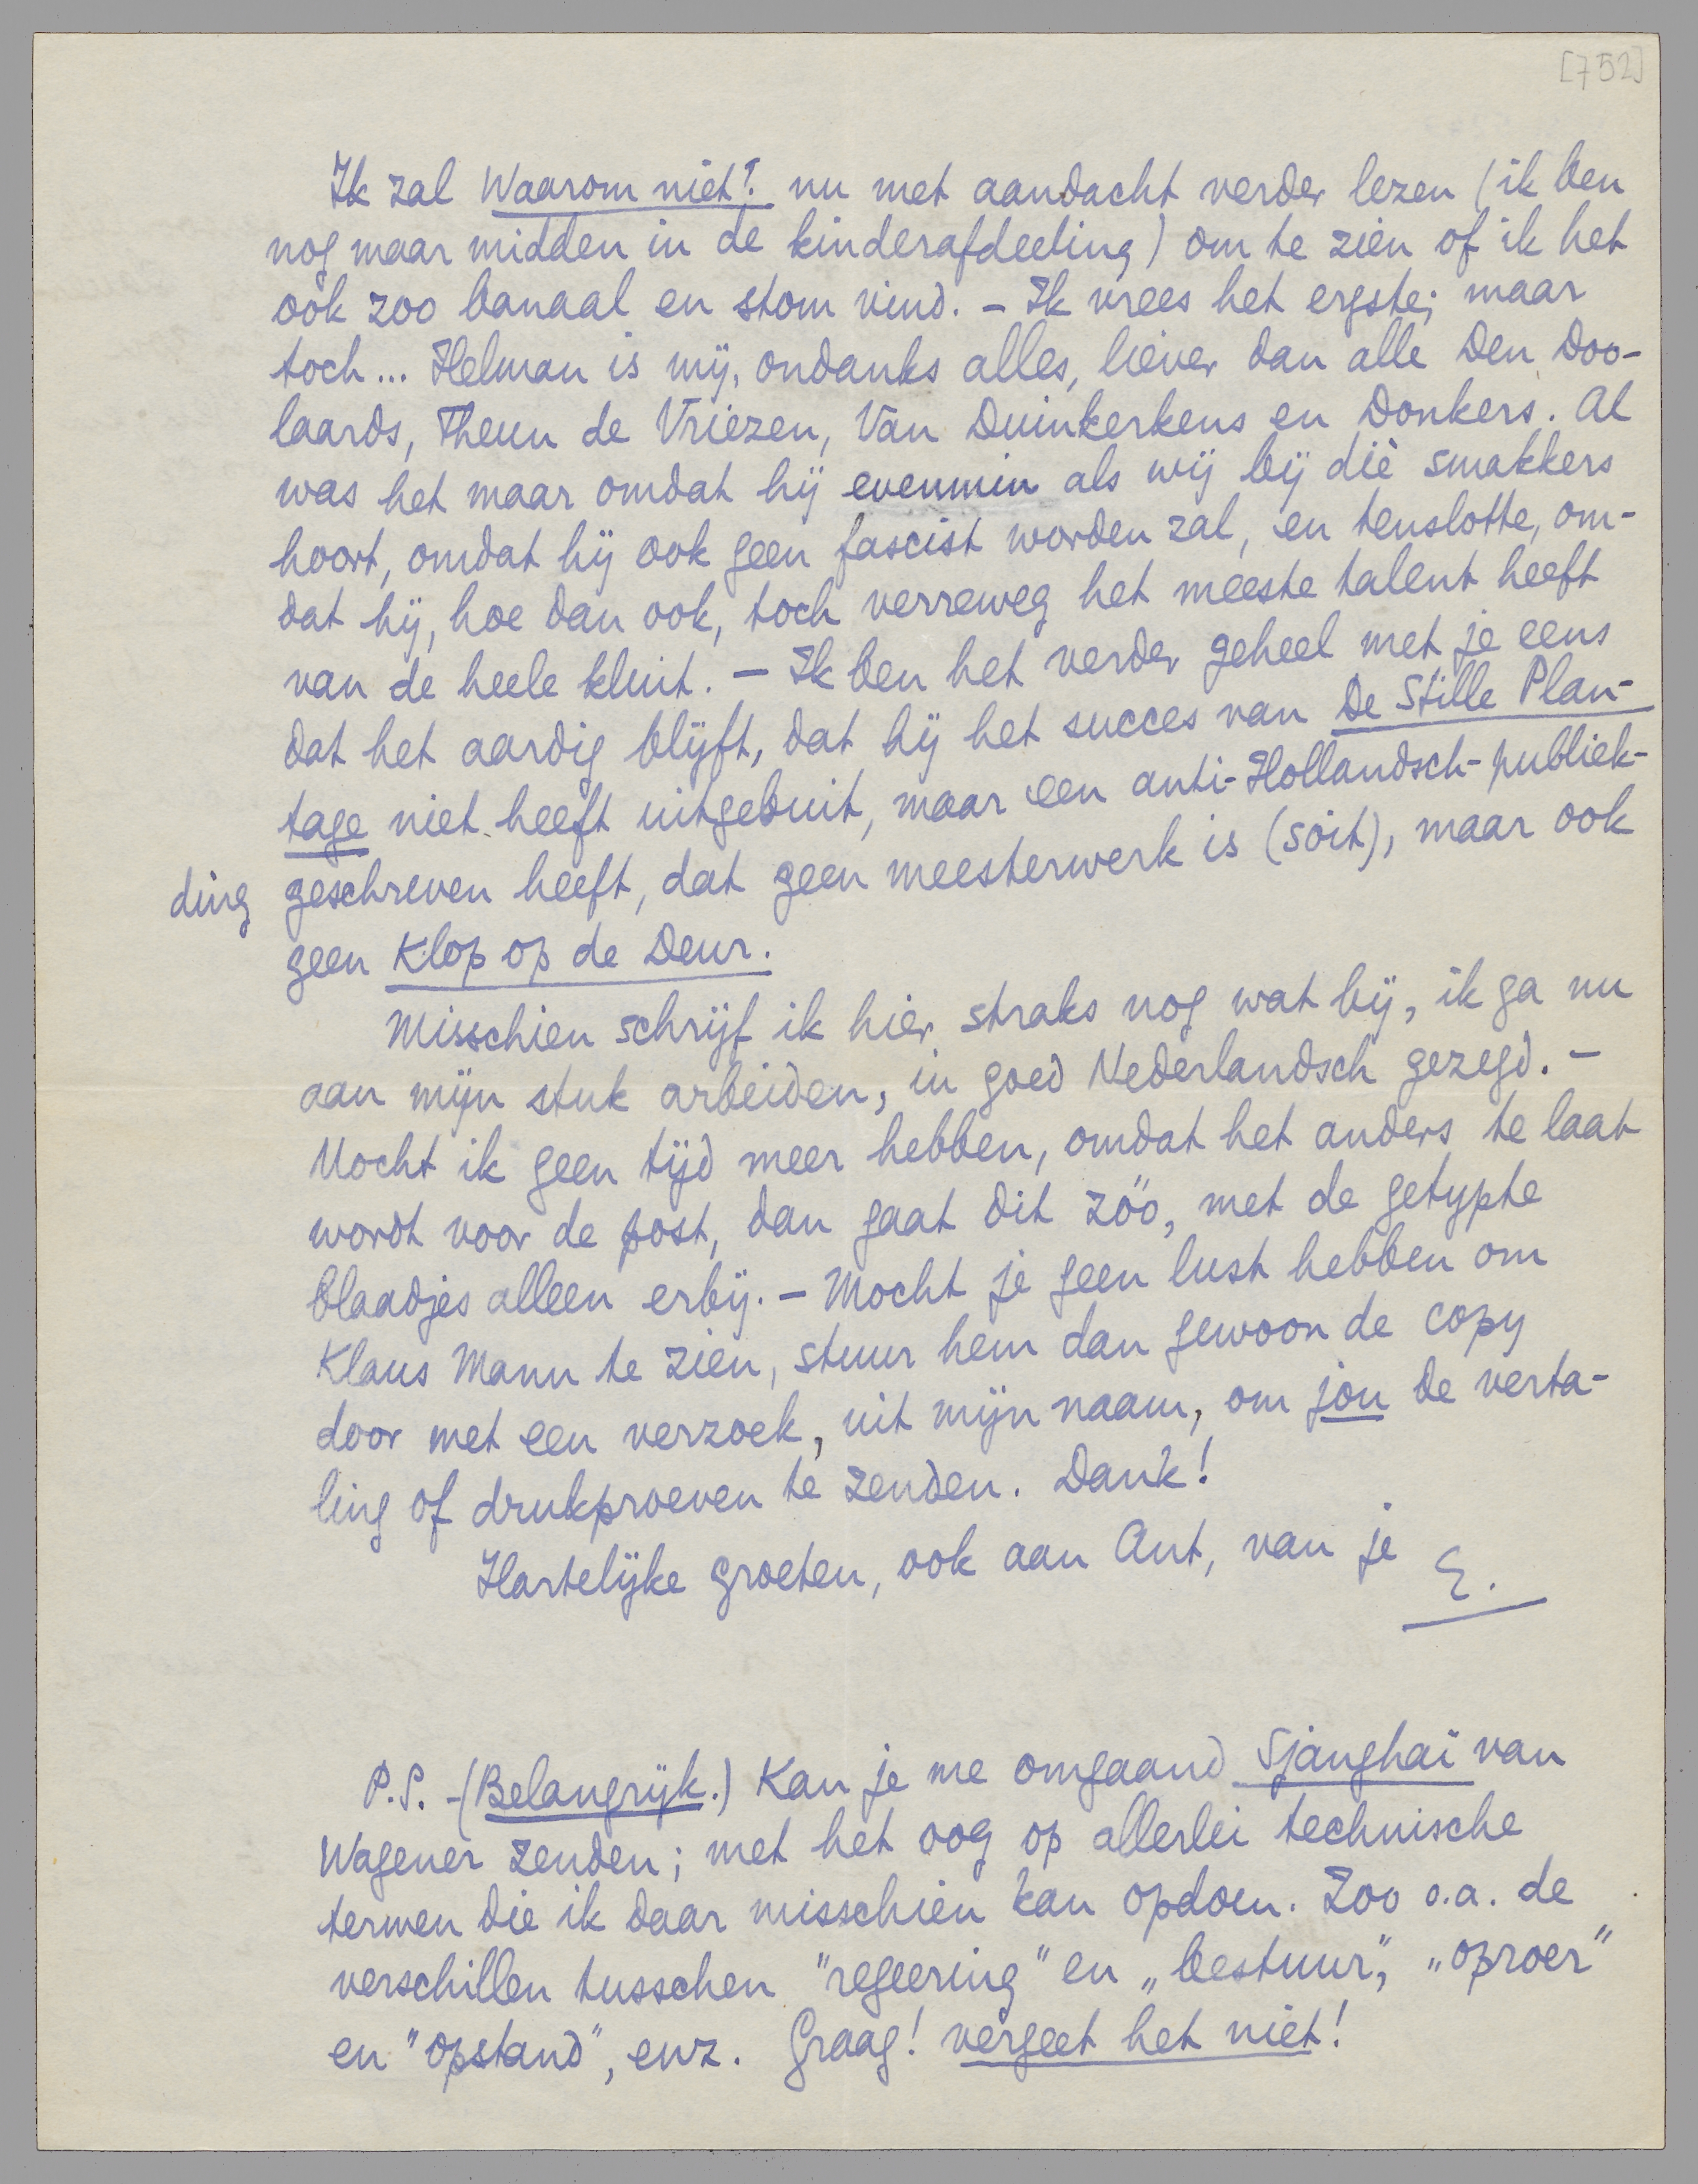 [752]
Ik zal Waarom niet? nu met aandacht verder lezen (ik ben
nog maar midden in de kinderafdeeling) om te zien of ik het
ook zoo banaal en stom vind. – Ik vrees het ergste; maar
toch... Helman is mij, ondanks alles, liever dan alle Den Doo-
laards, Theun de Vriezen, Van Duinkerkens en Donkers. Al
was het maar omdat hij evenmin als wij bij diè smakkers
hoort, omdat hij ook geen fascist worden zal, en tenslotte, om-
dat hij, hoe dan ook, toch verreweg het meeste talent heeft
van de heele kluit. – Ik ben het verder geheel met je eens
dat het aardig blijft, dat hij het succes van De Stille Plan-
tage niet heeft uitgebuit, maar een anti-Hollandsch-publiek-
ding geschreven heeft, dat geen meesterwerk is (soit), maar ook
geen Klop op de Deur.
Misschien schrijf ik hier straks nog wat bij, ik ga nu
aan mijn stuk arbeiden, in goed Nederlandsch gezegd. –
Mocht ik geen tijd meer hebben, omdat het anders te laat
wordt voor de post, dan gaat dit zóó, met de getypte
blaadjes alleen erbij. – Mocht je geen lust hebben om
Klaus Mann te zien, stuur hem dan gewoon de copy
door met een verzoek, uit mijn naam, om jou de verta-
ling of drukproeven te zenden. Dank!
Hartelijke groeten, ook aan Ant, van je E.
P.S. – (Belangrijk.) Kan je me omgaand Sjanghai van
Wagener zenden; met het oog op allerlei technische
termen die ik daar misschien kan opdoen. Zoo o.a. de
verschillen tusschen "regeering" en „bestuur", „oproer"
en "opstand", enz. Graag! vergeet het niet!